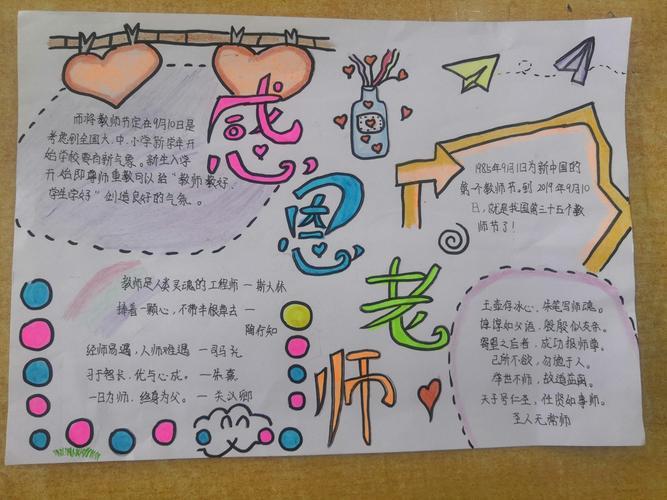 感恩老师
而将教师节定在9月10日是
考虑到全国大、中、小学新学年开
始学校要有新气象。新生入学
开始即尊师重教可以给“教师教好、
学生学好”创造良好的气氛。
1985年9月10为新中国的
第一个教师节。到2019年9月10
日,就是我国第三十五个教
师节了!
教师是人类灵魂的工程师 — 斯大林
捧着一颗心,不带半根草去 —
陶行知
经师易遇,人师难遇 — 司马光
习于智长,优与心成。 — 朱熹
一日为师,终身为父。 — 关汉卿
玉壶存冰心,朱笔写师魂。
谆谆如父语,殷殷似友亲。
成功报师尊。
己所不欲,勿施于人。
举世不师,故道益离。
天子号仁圣,任贤如事师。
至人无常师